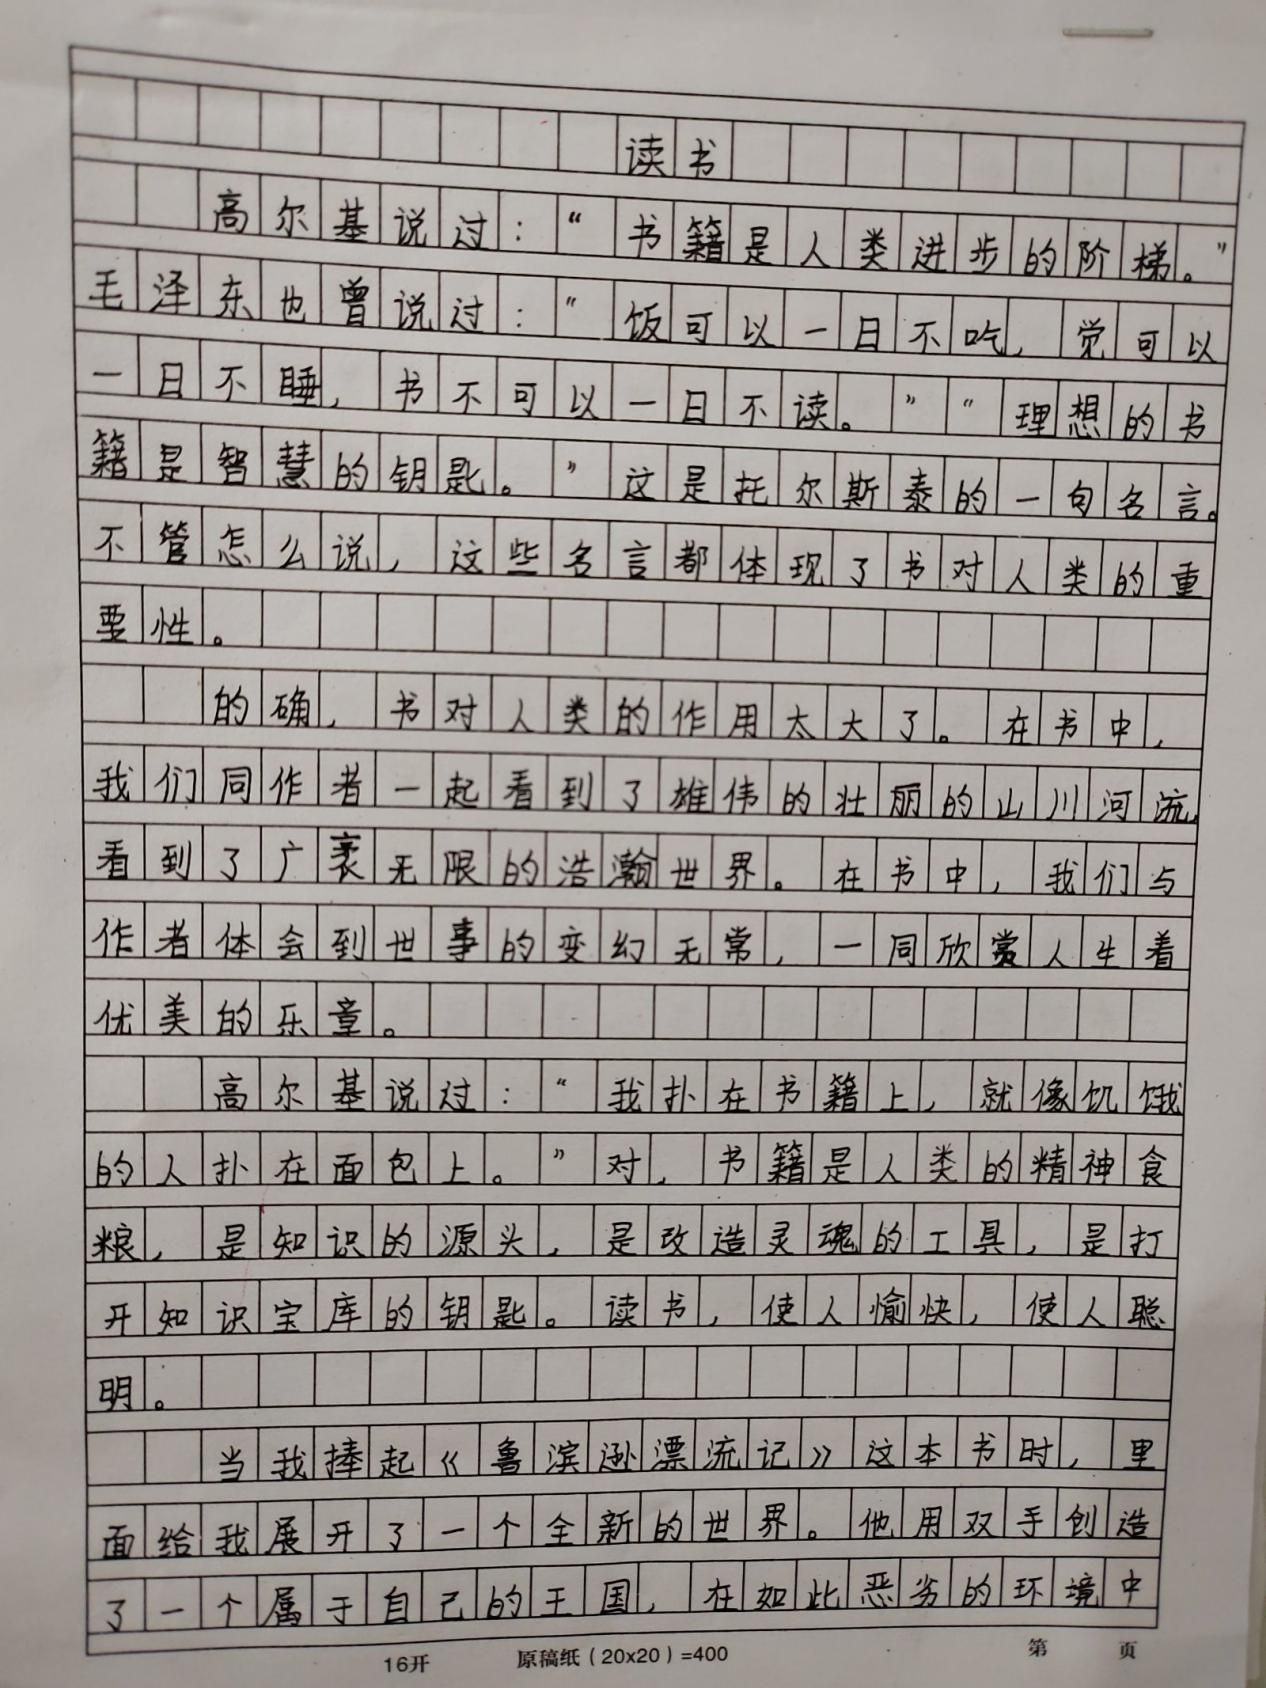 读书
高尔基说过：“书籍是人类进步的阶梯。”
毛泽东也曾说过：“饭可以一日不吃，觉可以
一日不睡，书不可以一日不读。”“理想的书
籍是智慧的钥匙。”这是托尔斯泰的一句名言。
不管怎么说，这些名言都体现了书对人类的重
要性。
的确，书对人类的作用太大了。在书中，
我们同作者一起看到了雄伟的壮丽的山川河流，
看到了广袤无限的浩瀚世界。在书中，我们与
作者体会到世事的变幻无常，一同欣赏人生着
优美的乐章。
高尔基说过：“我扑在书籍上，就像饥饿
的人扑在面包上。”对，书籍是人类的精神食
粮，是知识的源头，是改造灵魂的工具，是打
开知识宝库的钥匙。读书，使人愉快，使人聪
明。
当我捧起《鲁滨逊漂流记》这本书时，里
面给我展开了一个全新的世界。他用双手创造
了一个属于自己的王国，在如此恶劣的环境中
16开 原稿纸（20x20）=400 第 页